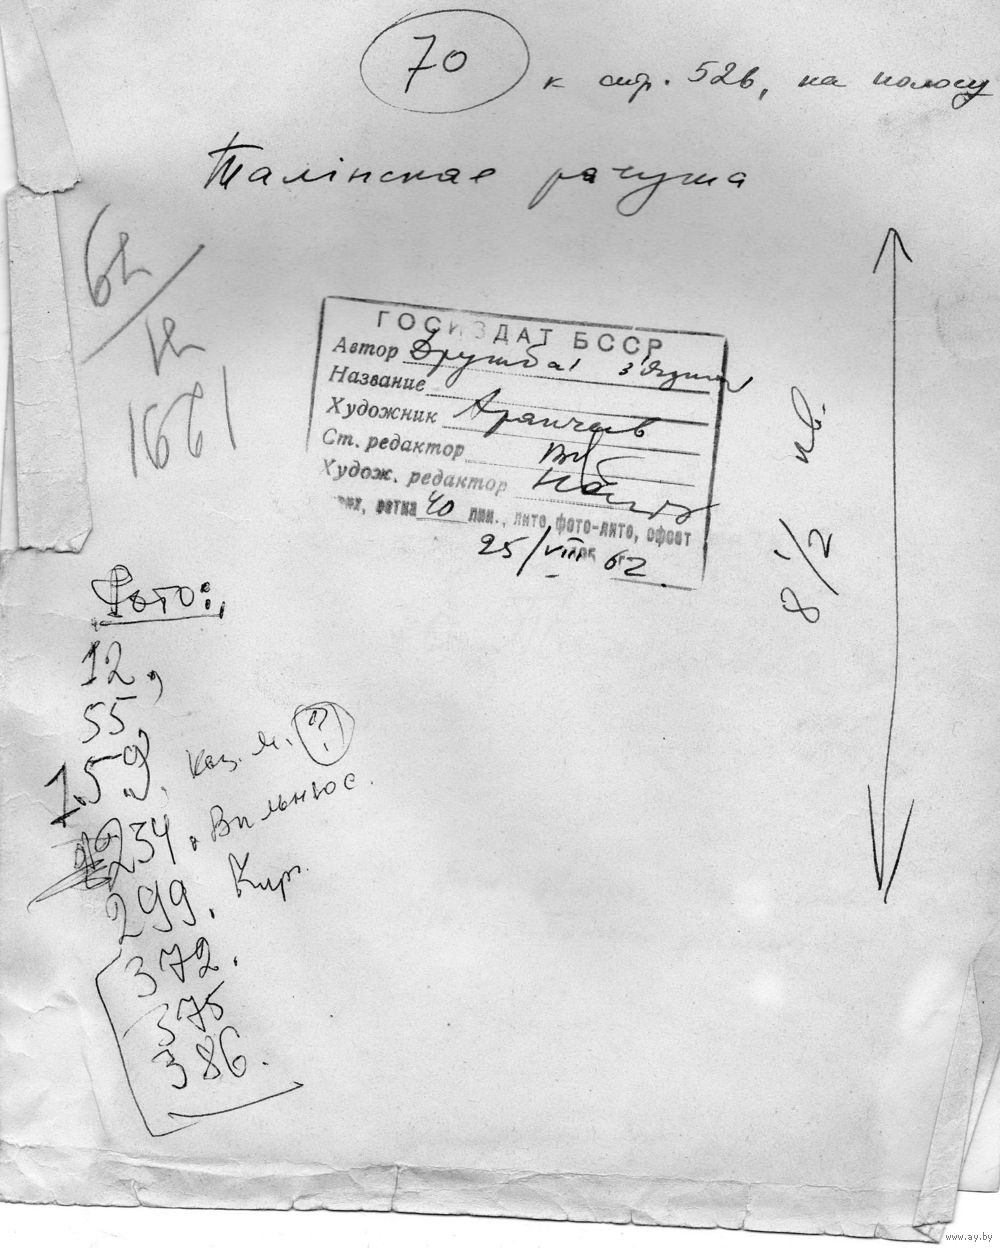 70
к стр. 52в, на полосу
Талінская ратуша
62/12
1681
ГОСИЗДАТ БССР
Автор Дружба
Название
Художник
Ст. редактор
Худож. редактор
сетка 40 лин., лито, фото-лито, офсет
25/VIII 62.
8 1/2 кв.
Фото:
12,
55,
159. Каз. м. ?
234. Вильнюс.
299. Кир.
372.
375
386.
www.ay.by